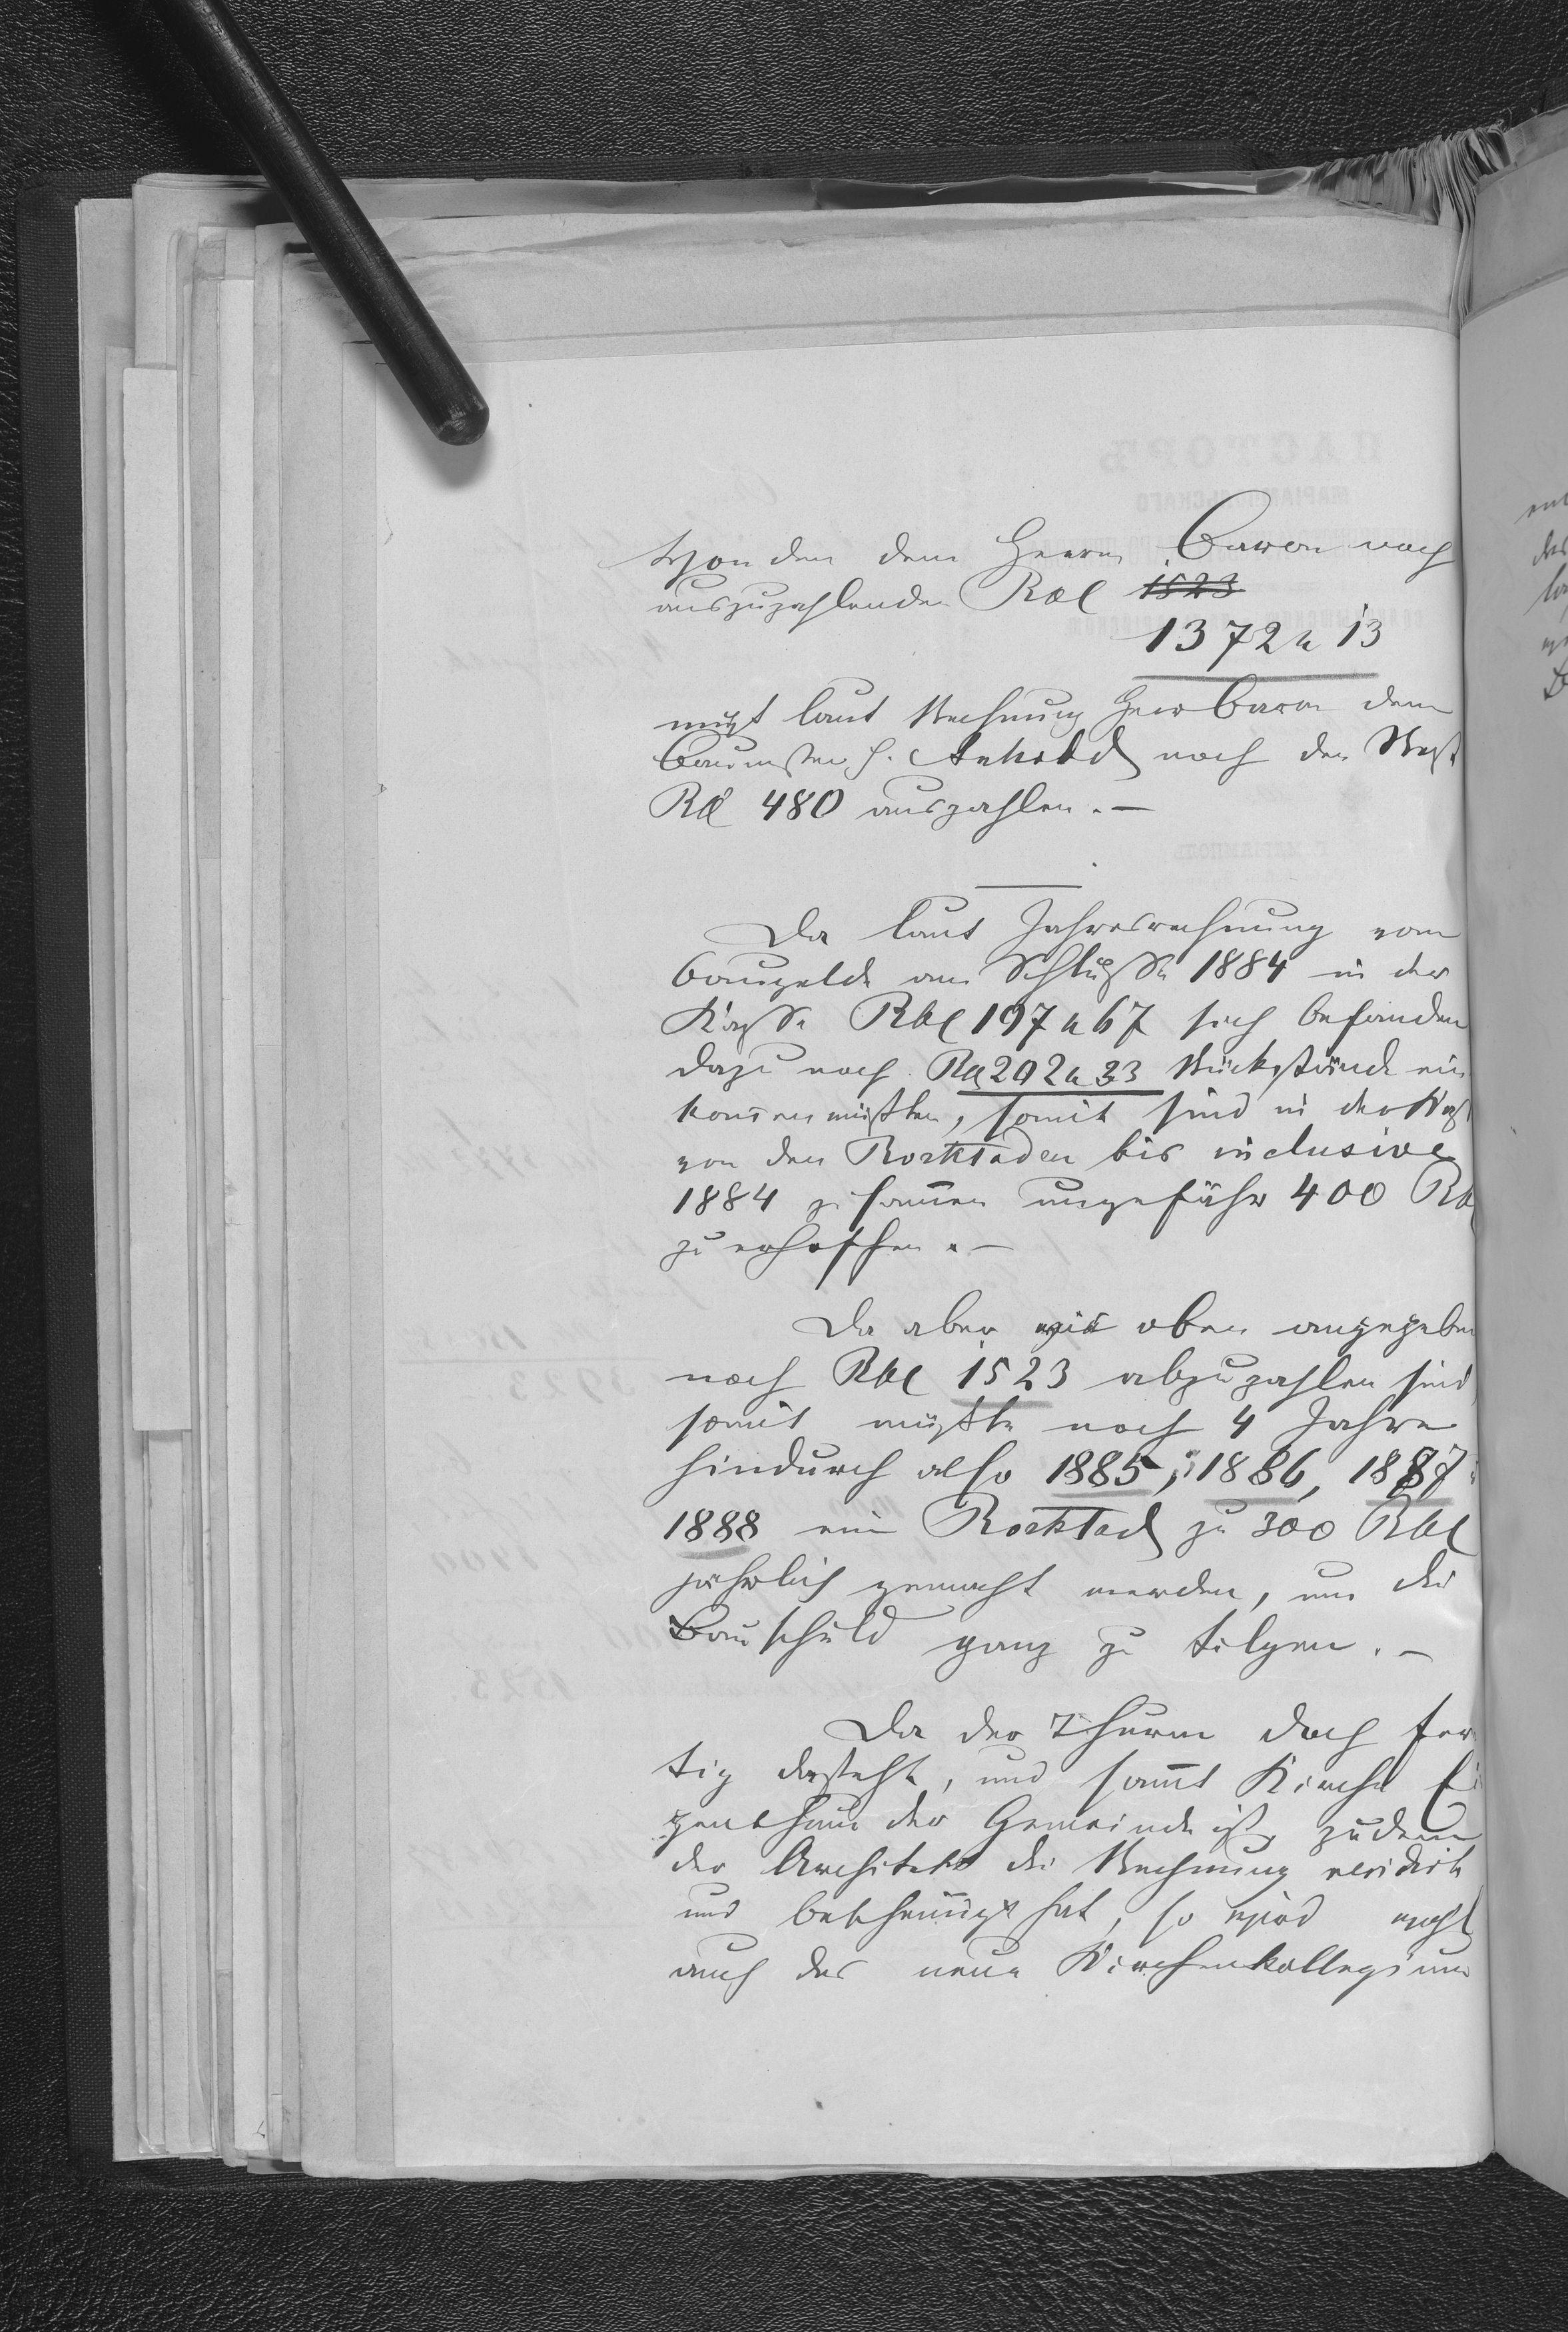 Von den dem Herrn Baron noch
auszuzahlenden Rbl 1523
1372 " 13
muß laut Rechnung Herr Baron dem
Baumstr. H. noch den Rest
Rbl 480 auszahlen. —
Da laut Jahresrechnung vom
Baugelde am Schluße 1884 in der
Kaße Rbl 197 " 67 sich befanden
dazu noch Rbl 202 " 33 Rückstände ein
kommen müßten, somit sind in der Kaß
von den Rozkladen bis inclusive
1884 zusammen ungefähr 400 Rbl
zu erhoffen. —
Da aber wie oben angegeben
noch Rbl 1523 abzuzahlen sind
somit müßte noch 4 Jahre
hindurch also 1885, 1886, 1887 u
1888 ein Rozklad zu 300 Rbl
jährlich gemacht werden, um die
Bauschuld ganz zu tilgen. —
Da der Thurm doch fer
tig dasteht, und sammt Kirche Ei
genthum der Gemeinde ist, zudem
der Architekt die Rechnung revidirt
und hat, so wird wohl
auch das neue Kirchenkollegium
ПАСТОРЪ
МАРІАМПОЛЬСКАГО
Г. МАРІАМПОЛЬ